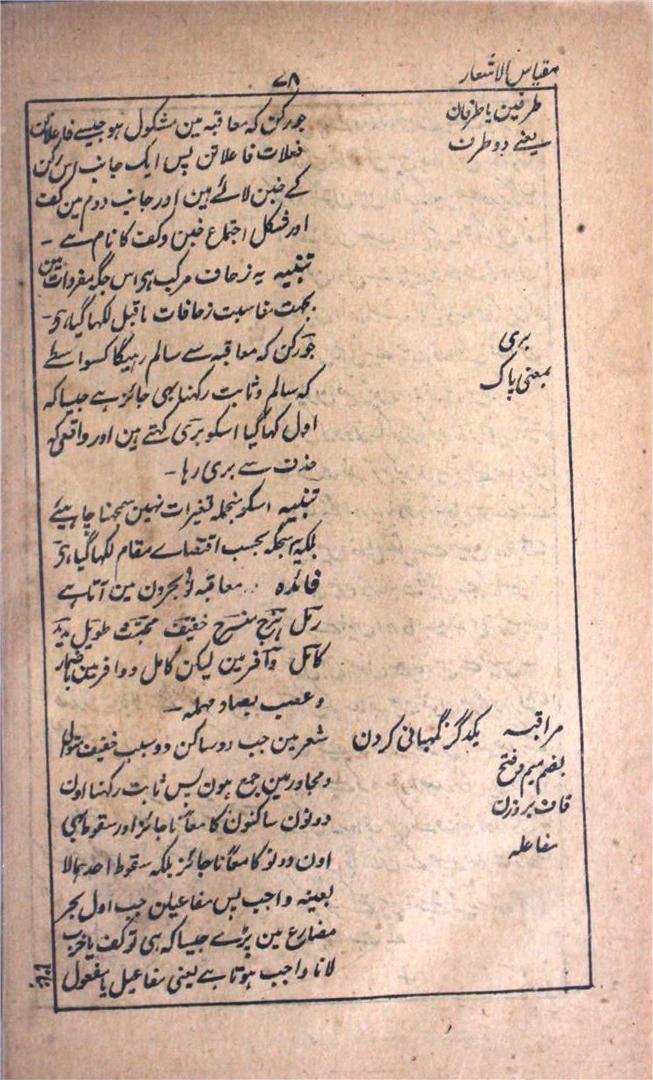 مقیاس الاشعار
۷۸
طرفین یا طرفان
یعنے دو طرف
جو رکن کہ معاقبہ مین مشکول ہو جیسے فاعلاتن
فعلات فاعلاتن پس ایک جانب اس رکن
کے خبن لائے ہین اور جانب دوم مین کف
اور شکل اجتماع خبن و کف کا نام ہے ۔
تنبیہ یہ زحاف مرکب ہی اس جگہ مفردات مین
بجہت مناسبت زحافات ماقبل لکھا گیا ہی۔
بری
بمعنی پاک
جو رکن کہ معاقبہ سے سالم رہیگا کسواسطے
کہ سالم و ثابت رکھنا بھی جائز ہے جیسا کہ
اول کہا گیا اسکو بری کہتے ہین اور واقعی کہ
حذف سے بری رہا ۔
تنبیہ اسکو منجملہ تغیرات نہین سمجھنا چاہیئے
بلکہ اسجگہ بحسب اقتضاے مقام لکھا گیا ہی
فائدہ معاقبہ نو بحرون مین آتا ہے
رمل ہزج منسرح خفیف مجتث طویل مدید
کامل وافر مین لیکن کامل و وافر مین باضمار
و عصب بصاد مہملہ ۔
مراقبہ یکدگر نگہبانی کردن
بضم میم و فتح
قاف بروزن
مفاعلہ
شعر مین جب دو ساکن دو سبب خفیف متوالی
و مجاور مین جمع ہون پس ثابت رکھنا اون
دونون ساکنون کا معاً ناجائز اور سقوط بھی
اون دونو کا معاً ناجائز بلکہ سقوط احدہما لا
بعینہ واجب پس مفاعیلن جب اول بحر
مضارع مین پڑے جیسا کہ ہی تو کف یا خرب
لانا واجب ہوتا ہے یعنی مفاعیل یا مفعول